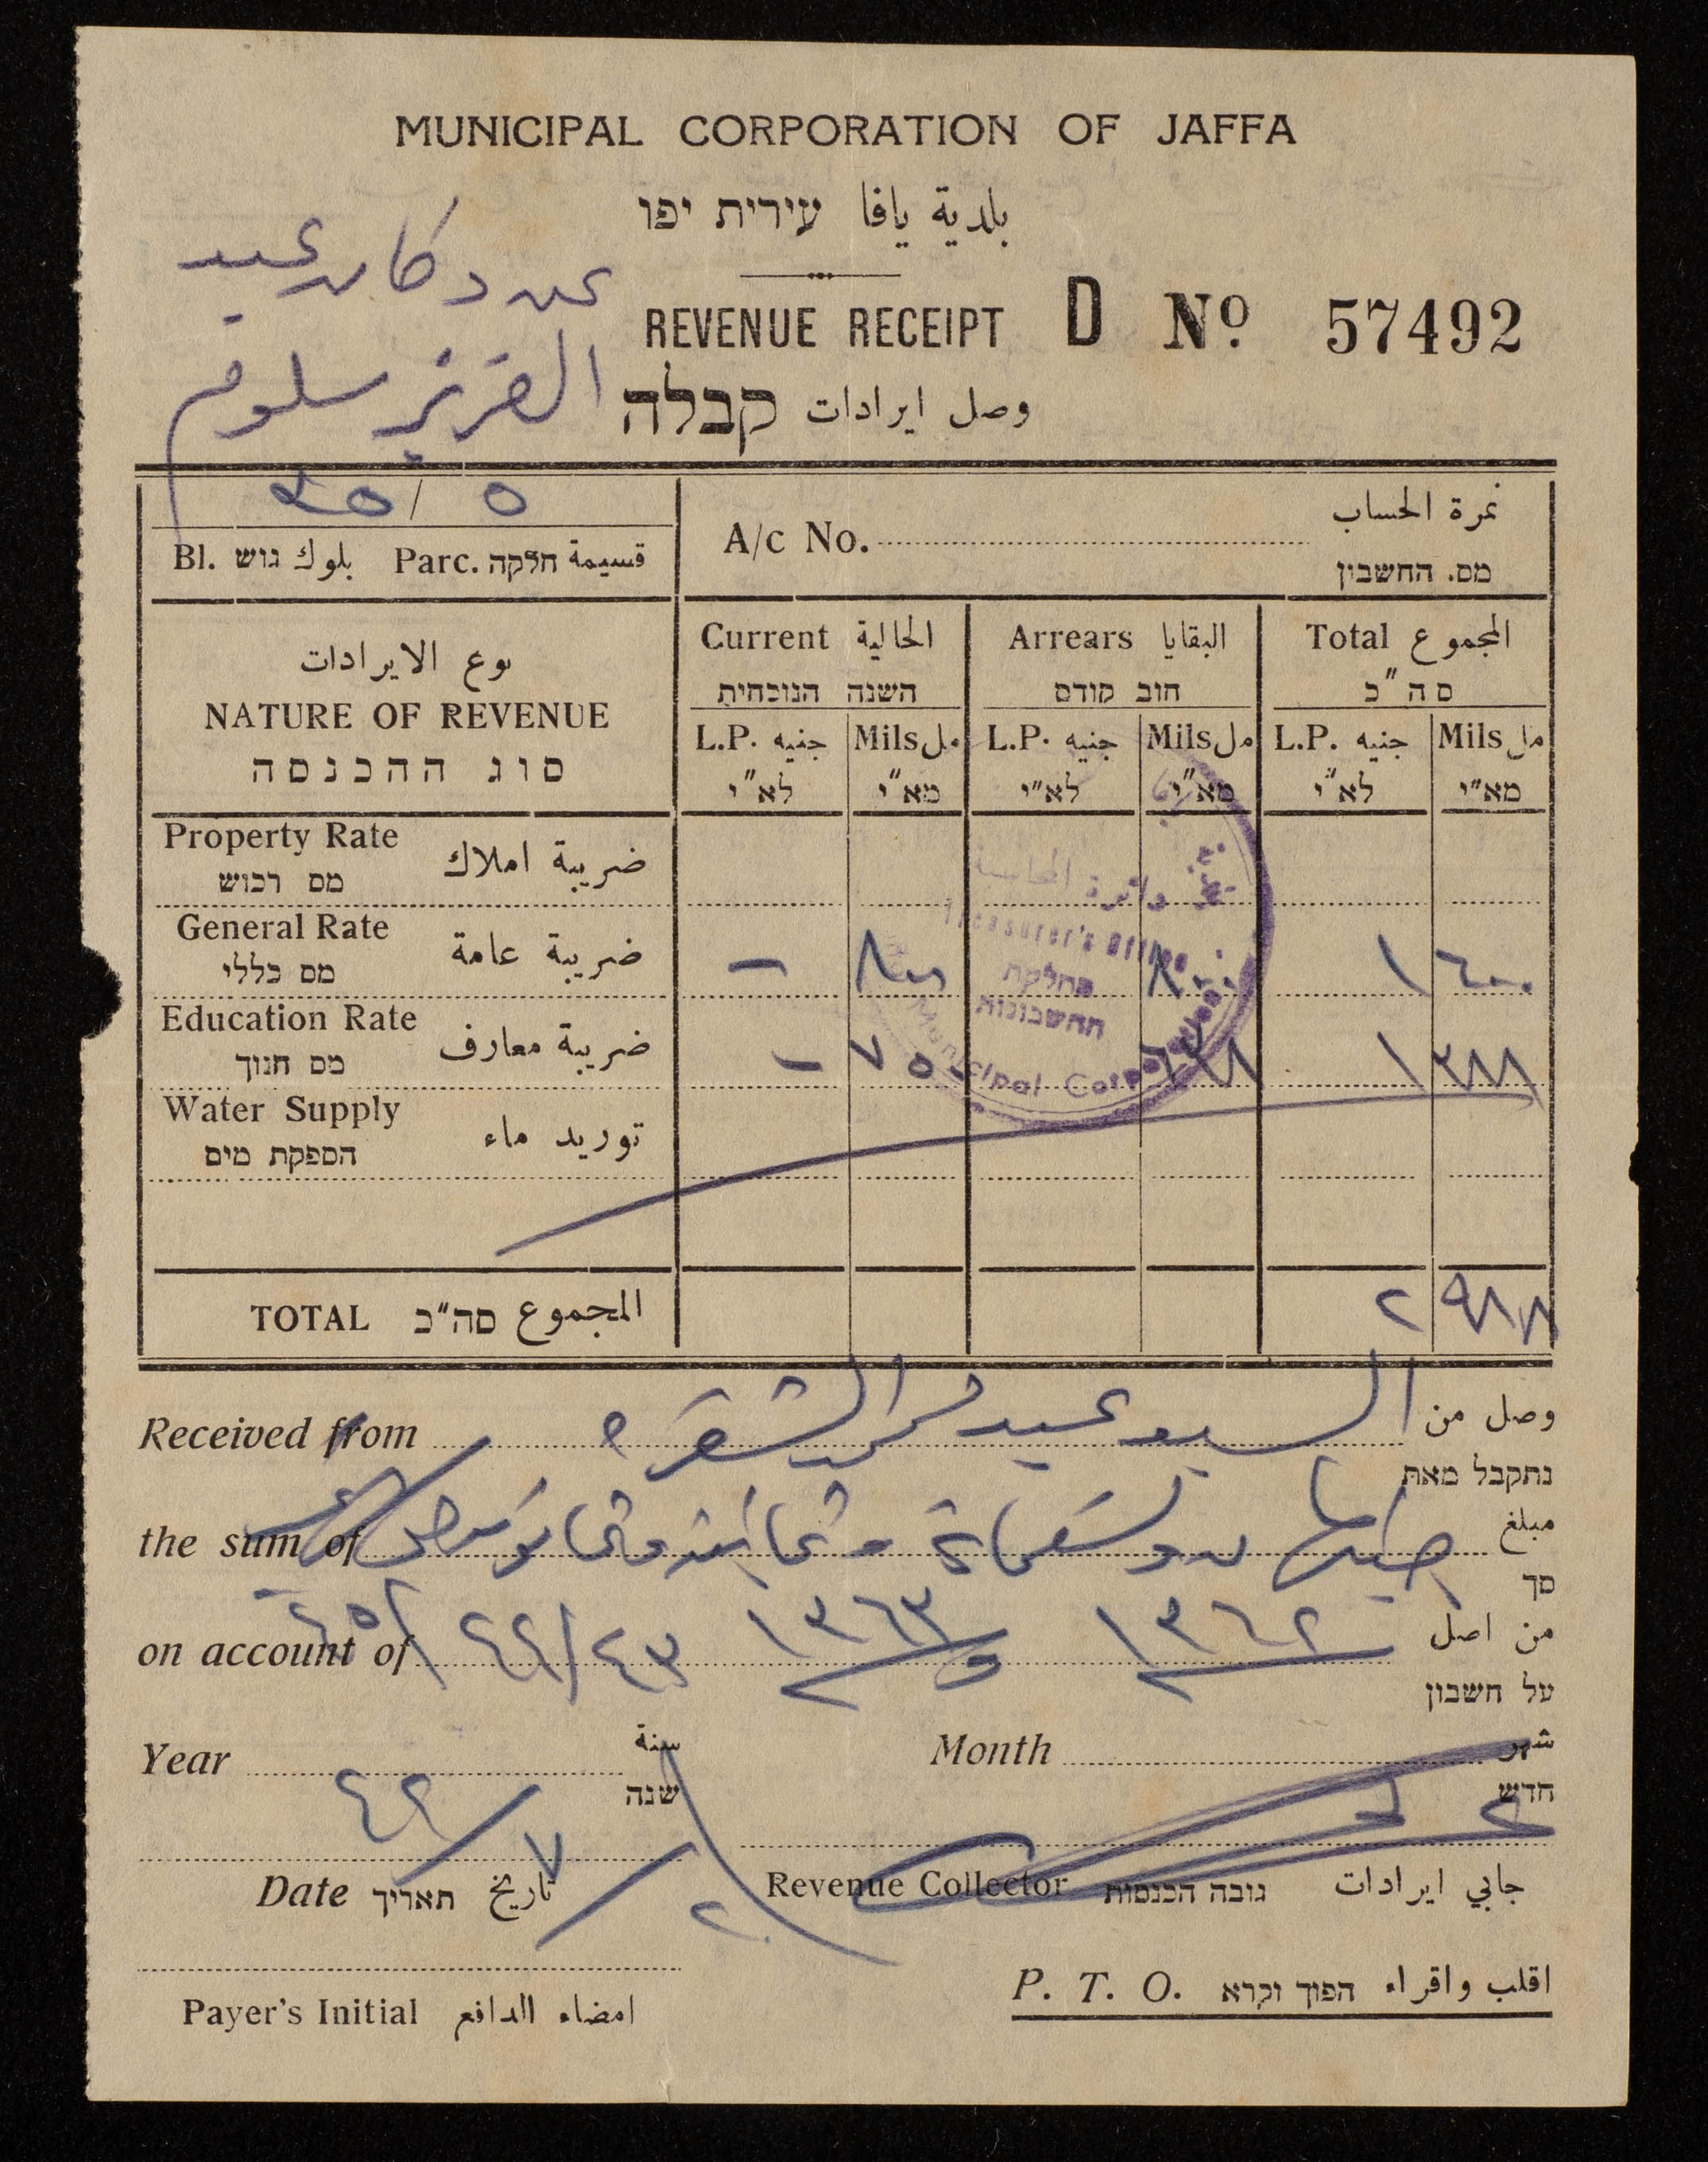 MUNICIPAL CORPORATION OF JAFFA
بلدية يافا עירית יפו
عن دكان عبد
العزيز سلوم
REVENUE RECEIPT D No. 57492
وصل ايرادات קבלה
Bl. بلوك גוש Parc. قسيمة חלקה
A/c No. نمرة الحساب
מס. החשבון
نوع الايرادات
NATURE OF REVENUE
סוג ההכנסה
Current الحالية Arrears البقايا Total المجموع
השנה הנוכחית חוב קודם סה"כ
L.P. جنيه Mils مل L.P. جنيه Mils مل L.P. جنيه Mils مل
לא"י מא"י לא"י מא"י לא"י מא"י
Property Rate ضريبة املاك
מס רכוש
دائرة المحاسبة
Treasurer's Office
מחלקת
החשבונות
Municipal Corporation
General Rate ضريبة عامة — ٨٠٠ ٨٠٠ ١ ٦٠٠
מס כללי
Education Rate ضريبة معارف — ٧٥٠ ٦٣٨ ١ ٣٨٨
מס חנוך
Water Supply توريد ماء
הספקת מים
TOTAL סה"כ المجموع ٢ ٩٨٨
Received from وصل من
נתקבל מאת
the sum of مبلغ
סך
on account of من اصل ١٣٦٢ و ١٣٦٣ ٤٣/٤٤
על חשבון
Year سنة Month شهر
שנה חדש
٢٠/٧/٤٤
Date תאריך تاريخ Revenue Collector גובה הכנסות جابي ايرادات
Payer's Initial امضاء الدافع
P. T. O. הפוך וקרא اقلب واقراء